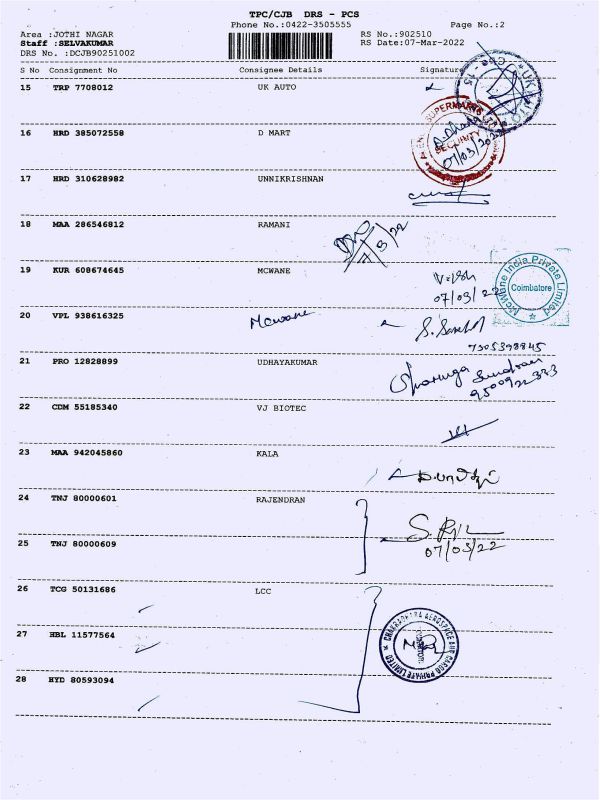 TPC/CJB DRS - PCS
Phone No.:0422-3505555 Page No.:2
Area :JOTHI NAGAR RS No.:902510
Staff :SELVAKUMAR RS Date:07-Mar-2022
DRS No. :DCJB90251002
S No Consignment No Consignee Details Signature
15 TRP 7708012 UK AUTO
16 HRD 385072558 D MART
SECURITY
07/03/2022
17 HRD 310628982 UNNIKRISHNAN
18 MAA 286546812 RAMANI
19 KUR 608674645 MCWANE
07/03/22
McWane India Private Limited
Coimbatore
20 VPL 938616325 Mcwane
7305398845
21 PRO 12828899 UDHAYAKUMAR
22 CDM 55185340 VJ BIOTEC
23 MAA 942045860 KALA
24 TNJ 80000601 RAJENDRAN
07/03/22
25 TNJ 80000609
26 TCG 50131686 LCC
27 HBL 11577564
28 HYD 80593094